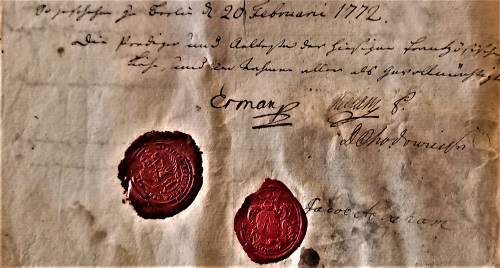 So geschehen zu Berlin d 20 Februarii 1772.
Die Prediger und Aelteste der hiesigen frantzösischen
und der Nahmen aller als Gevollmächtigte
Erman
D Chodowiecki
Jacob Abraham